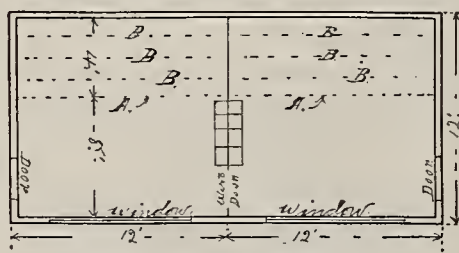 B B
4'
B B
B B
A. A.
8'
12'
Door
Wire
Door
Door
window window
12' 12'